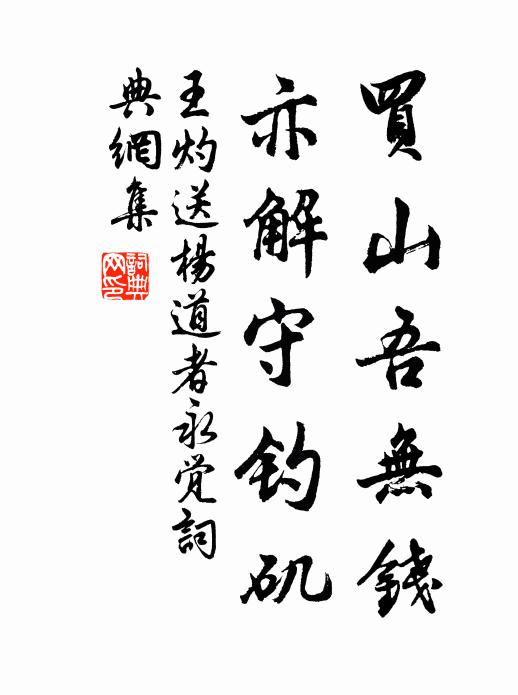 買山吾無錢
亦解守釣矶
王灼送楊道者永覚詞
典網集
詞典网印